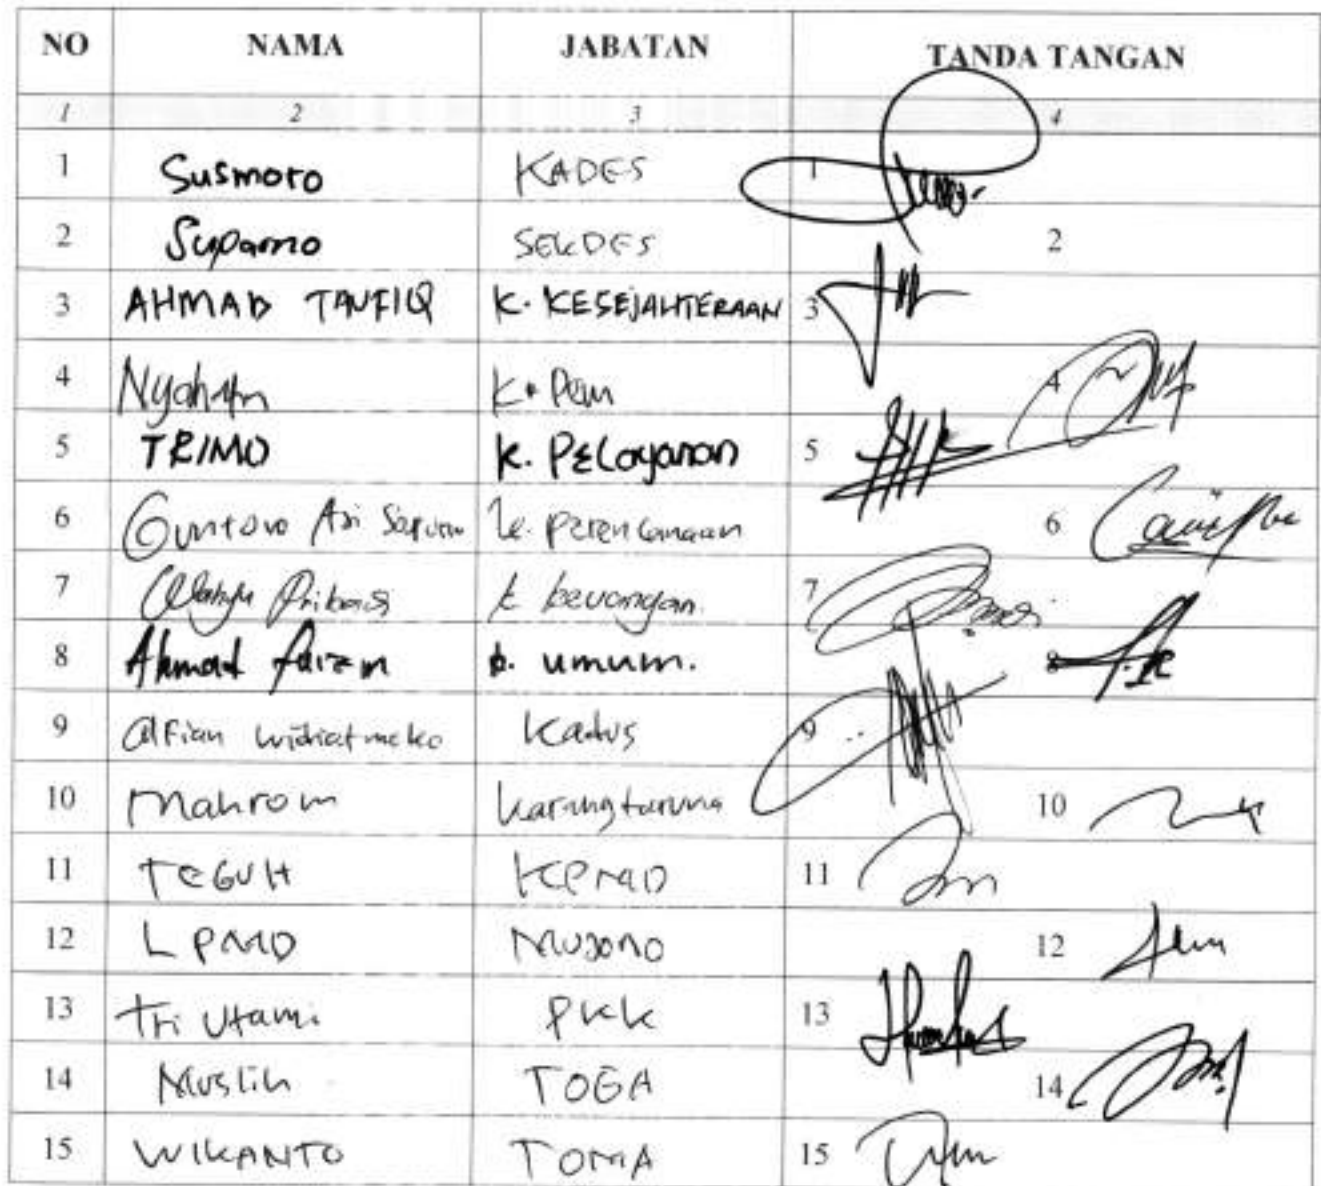 NO NAMA JABATAN TANDA TANGAN
1 2 3 4
1 Susmoro KADES 1
2 Suparno SEKDES 2
3 AHMAD TAUFIQ K. KESEJAHTERAAN 3
4 K. Pem 4
5 TRIMO K. PELayanan 5
6 Ari K. Perencanaan 6
7 Wahyu Pribadi k keuangan. 7
8 Ahmad faizin k. umum. 8
9 alfian widiatmoko Kadus 9
10 Mahrom karangtaruna 10
11 TEGUH KPMD 11
12 LPMD MUJONO 12
13 Tri Utami PKK 13
14 Muslih TOGA 14
15 WIKANTO TOMA 15